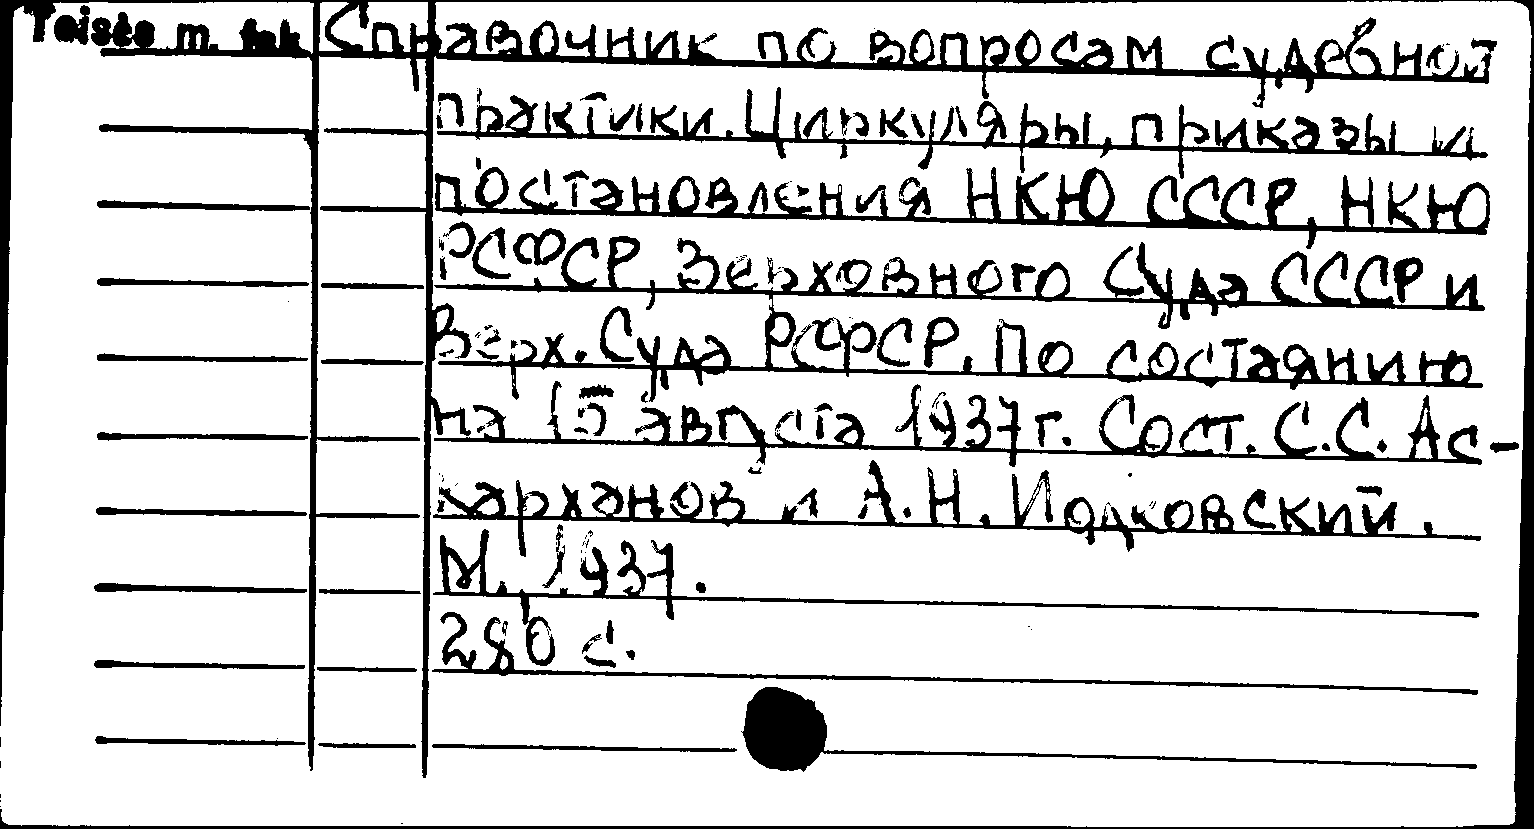 Teiste m. fak Справочник по вопросам судебной
практики. Циркуляры, приказы и
постановления НКЮ СССР, НКЮ
РСФСР, Зерховного Суда СССР и
Верх. Суда РСФСР. По состаянию
на 15 августа 1937 г. Сост. С.С. Ас-
карханов и А.Н. Иодковский.
М., 1937.
280 с.